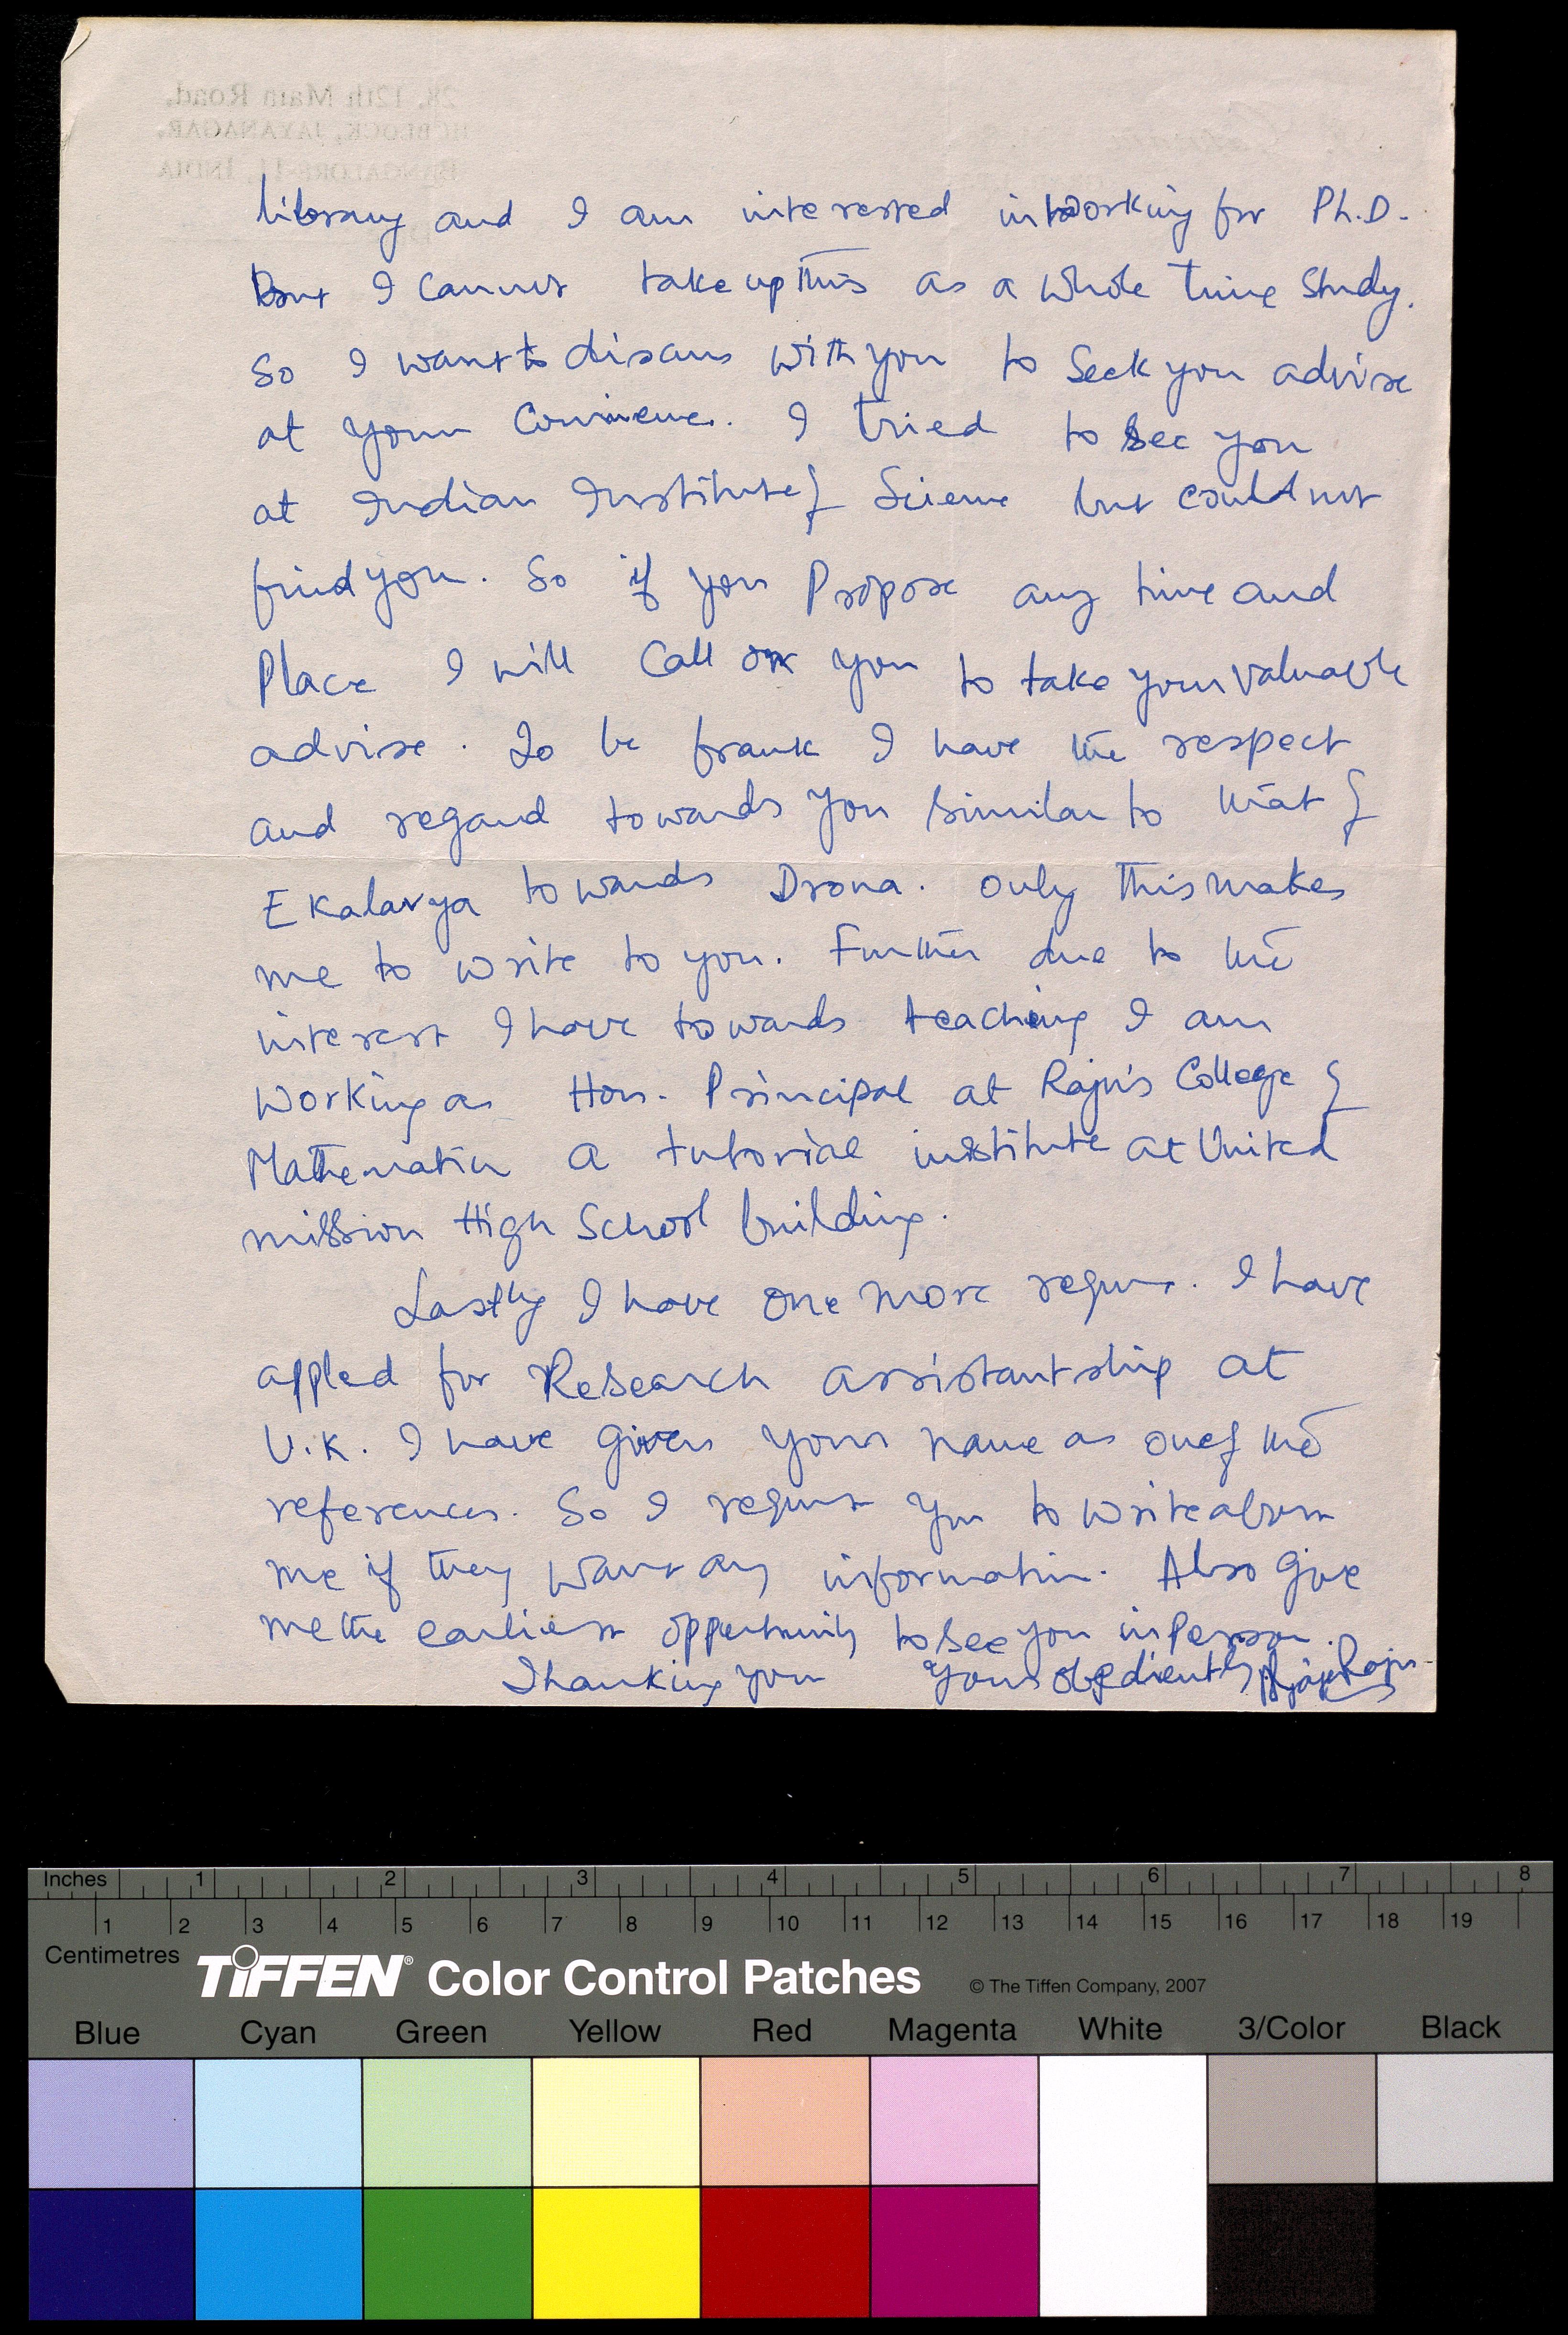 28, 12th Main Road,
BLOCK, JAYANAGAR,
BANGALORE-11, INDIA
library and I am interested in working for Ph.D.
But I cannot take up this as a whole time study.
So I want to discuss with you to seek you advise
at your . I tried to see you
at Indian Institute of Science but could not
find you. So if you Propose any time and
Place I will Call on you to take your valuable
advise. To be frank I have the respect
and regard towards you similar to that of
Ekalavya towards Drona. Only this makes
me to write to you. Further due to the
interest I have towards teaching I am
Working as Hon. Principal at Raju's College of
Mathematics a tutorial institute at United
mission High School building.
Lastly I have one more request. I have
appled for Research assistantship at
U.K. I have given your name as one of the
references. So I request you to write about
me if they want any information. Also give
me the earliest opportunity to see you in person.
Thanking you Yours obediently Raju
Inches 1 2 3 4 5 6 7 8
1 2 3 4 5 6 7 8 9 10 11 12 13 14 15 16 17 18 19
Centimetres
TIFFEN® Color Control Patches © The Tiffen Company, 2007
Blue Cyan Green Yellow Red Magenta White 3/Color Black